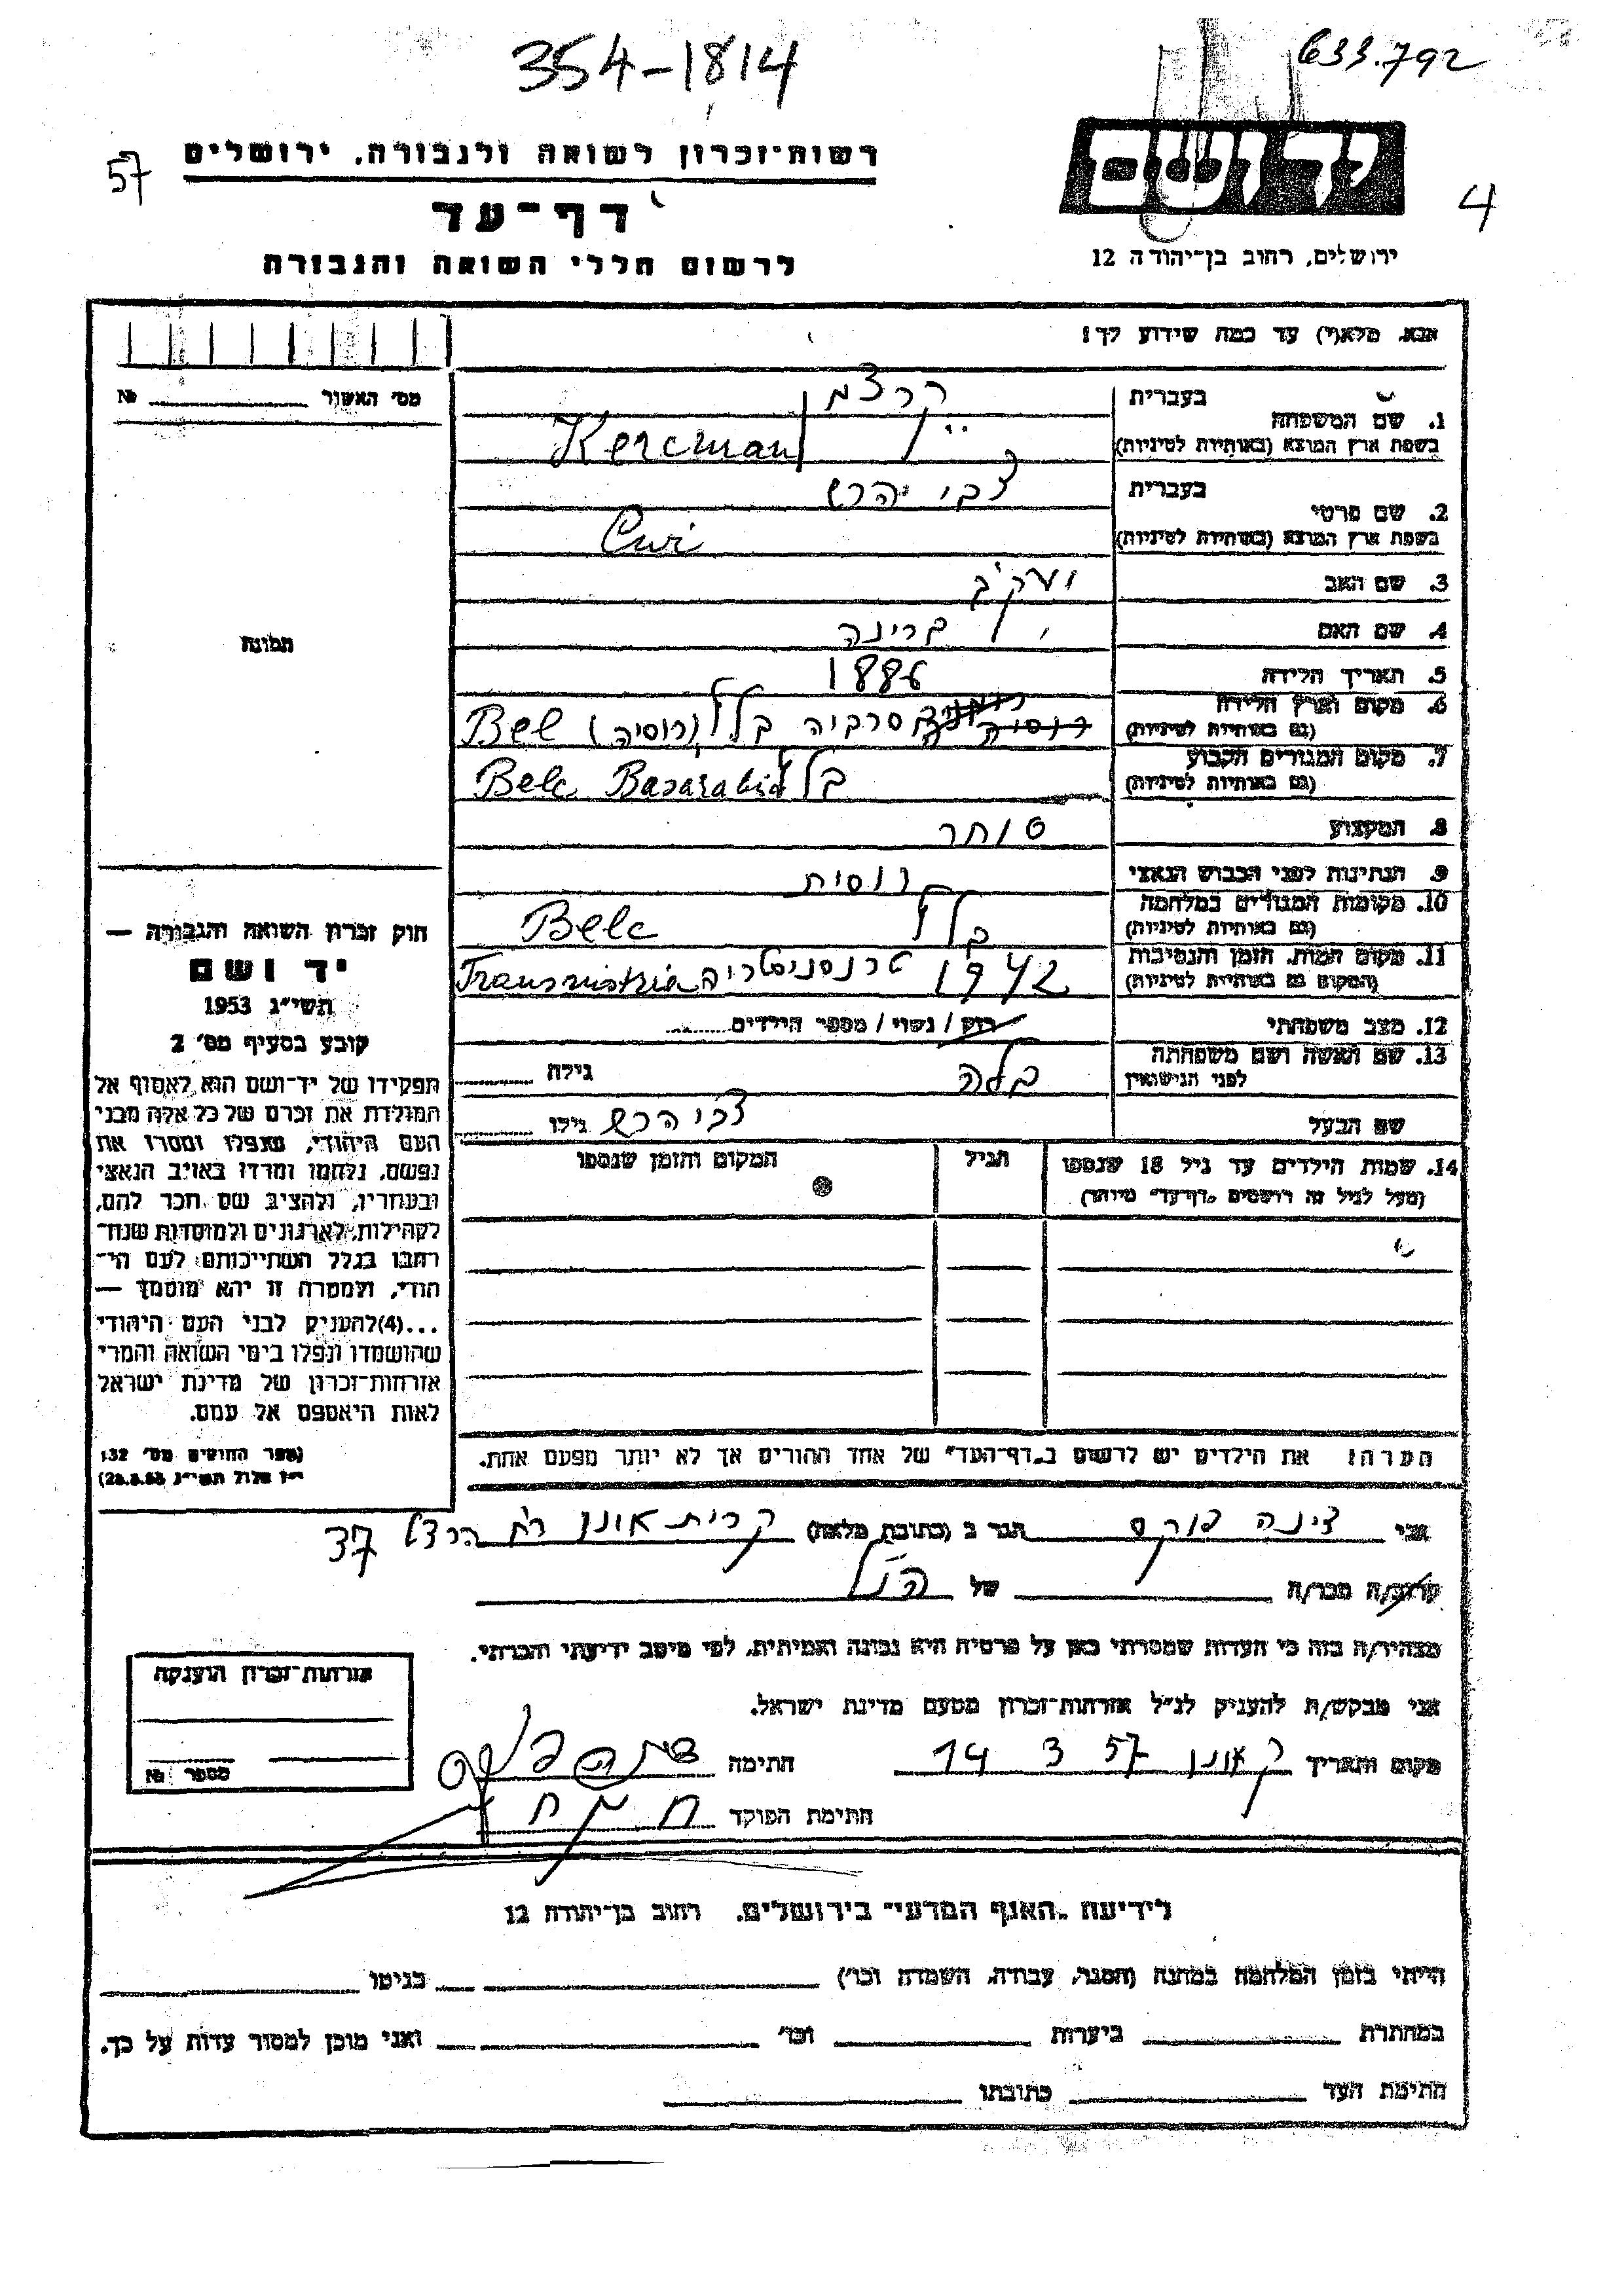 354-1814
633.792
57
4
רשות-זכרון לשואה ולגבורה, ירושלים
דף-עד
לרשום חללי השואה והגבורה
יד ושם
ירושלים, רחוב בן-יהודה 12
אנא, מלא(י) עד כמה שידוע לך!
מס' האשור № 
בעברית
1. שם המשפחה
בשפת ארץ המוצא (באותיות לטיניות)
קרצמן
Kercman
בעברית
2. שם פרטי
בשפת ארץ המוצא (באותיות לטיניות)
צבי הרש
Cwi
3. שם האב
יעקב
4. שם האם
5. תאריך הלידה
1886
6. מקום וארץ הלידה
(גם באותיות לטיניות)
בסרביה בלץ (רוסיה) Bel
7. מקום המגורים הקבוע
(גם באותיות לטיניות)
בלץ Belc Basarabia
8. המקצוע
סוחר
9. הנתינות לפני הכבוש הנאצי
רוסית
10. מקומות המגורים במלחמה
(גם באותיות לטיניות)
בלץ Belc
11. מקום המות, הזמן והנסיבות
(המקום גם באותיות לטיניות)
1942 טרנסניסטריה Transnistria
12. מצב משפחתי
רווק / נשוי / מספר הילדים
13. שם האשה ושם משפחתה
לפני הנישואין
בלה
גילה
שם הבעל
צבי הרש גילו
14. שמות הילדים עד גיל 18 שנספו
(מעל לגיל זה רושמים „דף-עד" מיוחד)
הגיל
המקום והזמן שנספו
תמונה
חוק זכרון השואה והגבורה —
יד ושם
תשי"ג 1953
קובע בסעיף מס' 2
תפקידו של יד-ושם הוא לאסוף אל
המולדת את זכרם של כל אלה מבני
העם היהודי, שנפלו ומסרו את
נפשם, נלחמו ומרדו באויב הנאצי
ובעוזריו, ולהציב שם וזכר להם,
לקהילות, לארגונים ולמוסדות שנח־
רבו בגלל השתייכותם לעם הי־
הודי, ולמטרה זו יהא מוסמך —
...(4)להעניק לבני העם היהודי
שהושמדו ונפלו בימי השואה והמרי
אזרחות-זכרון של מדינת ישראל
לאות היאספם אל עמם.
(ספר החוקים מס' 132
י"ז אלול תשי"ג 28.8.53)
הערה! את הילדים יש לרשום ב„דף-העד" של אחד ההורים אך לא יותר מפעם אחת.
אני צינה פורקס הגר ב (כתובת מלאה) קרית אונו רח הרצל 37
קרוב/ה מכר/ה של הנ"ל
מצהיר/ה בזה כי העדות שמסרתי כאן על פרטיה היא נכונה ואמיתית, לפי מיטב ידיעתי והכרתי.
אני מבקש/ת להעניק לנ"ל אזרחות-זכרון מטעם מדינת ישראל.
מקום ותאריך ק אונו 14 3 57 חתימה
חתימת הפוקד
אזרחות-זכרון הוענקה
מספר №
לידיעת „האגף המדעי" בירושלים, רחוב בן-יהודה 12
הייתי בזמן המלחמה במחנה (הסגר, עבודה, השמדה וכו') בגיטו
במחתרת ביערות וכו' ואני מוכן למסור עדות על כך.
חתימת העד כתובתו